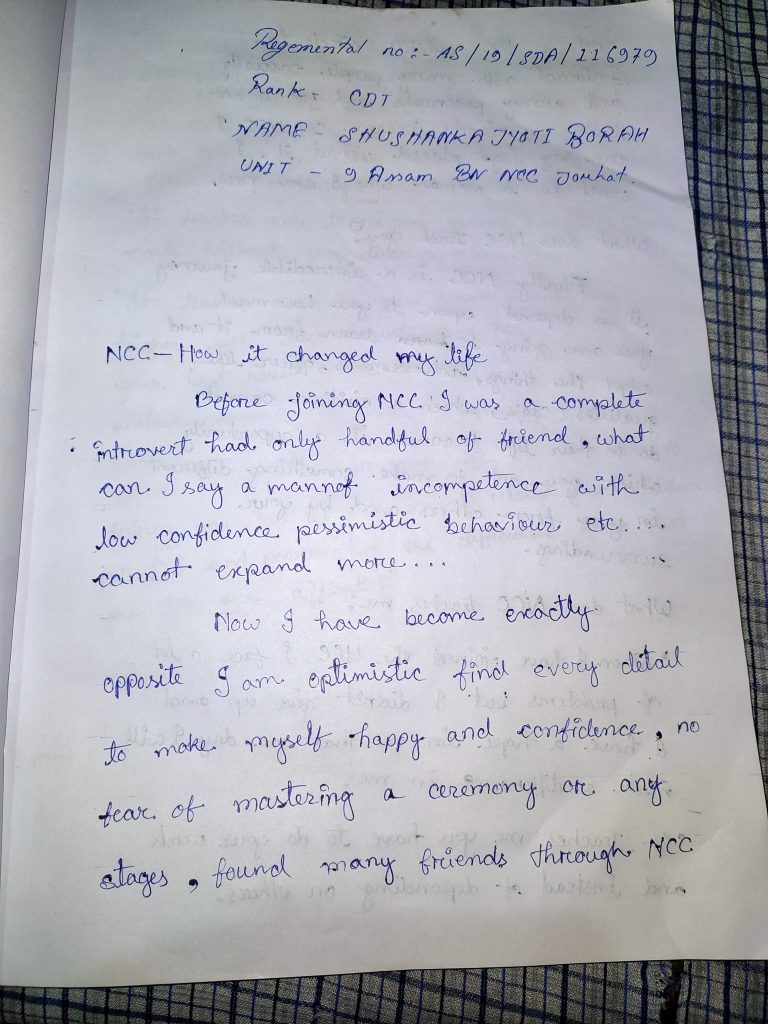 Regemental no :- AS/19/SDA/116979
Rank - CDT
NAME - SHUSHANKA JYOTI BORAH
UNIT - 9 Assam BN NCC Jorhat.
NCC - How it changed my life
Before Joining NCC I was a complete
introvert had only handful of friend, what
can I say a man of incompetence with
low confidence pessimistic behaviour etc....
cannot expand more...
Now I have become exactly
opposite I am optimistic find every detail
to make myself happy and confidence, no
fear of mastering a ceremony or any
stages, found many friends through NCC